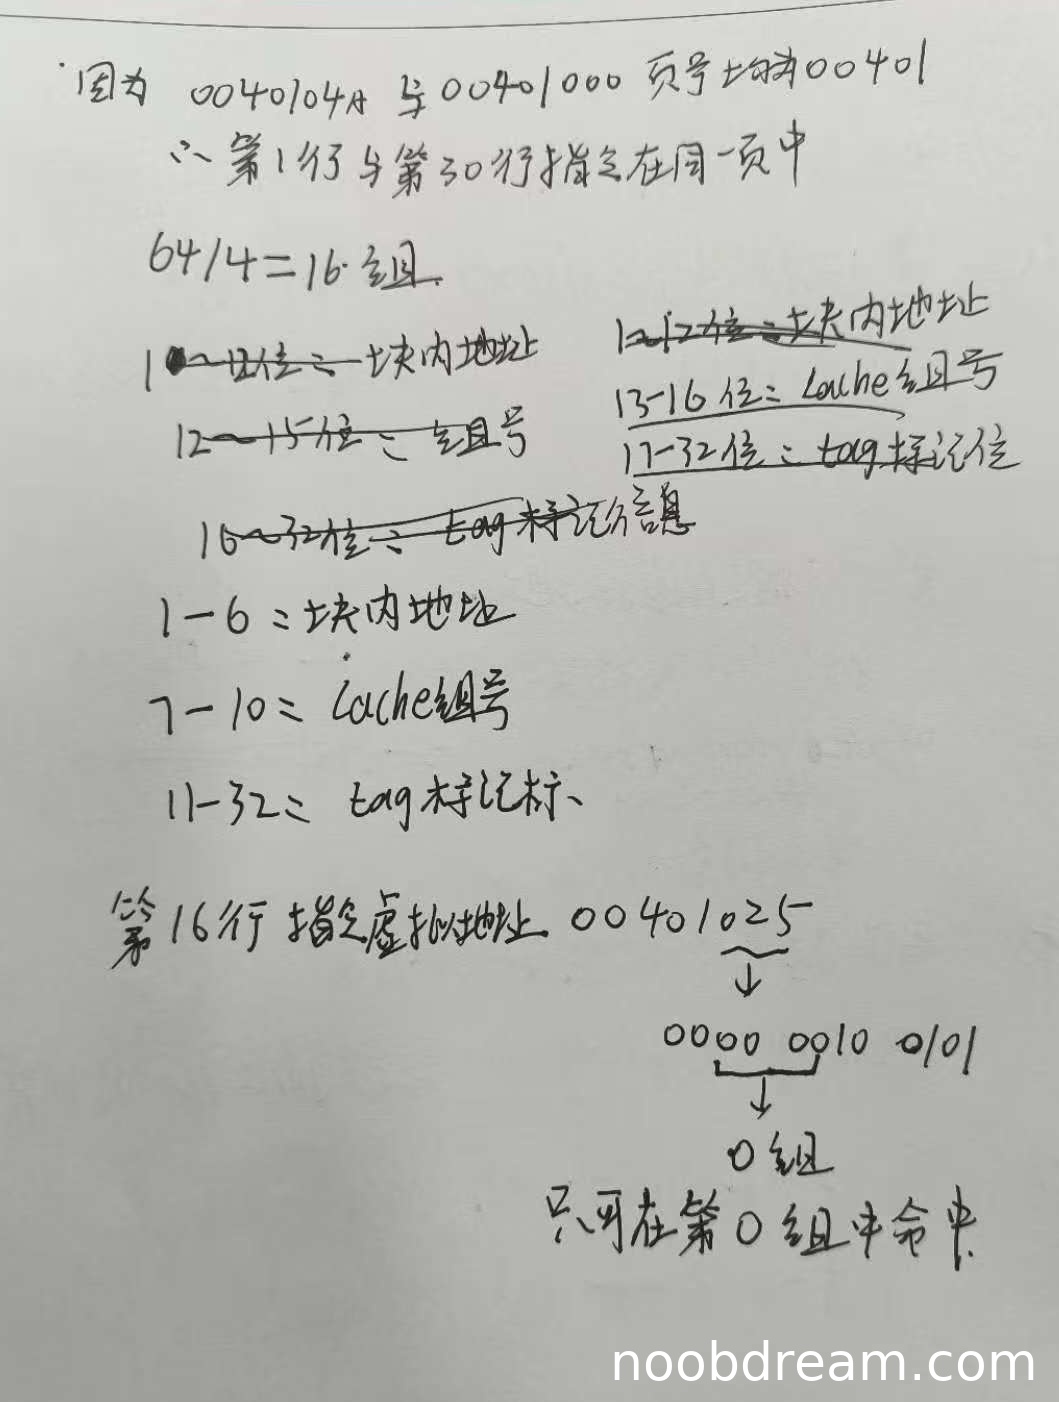 因为 0040104A 与 00401000 页号均为 00401
∴ 第1行与第30行指令在同一页中
64/4=16组.
1 ~ 12位: 块内地址
1~12位: 块内地址
13-16位: Cache组号
12~15位: 组号
17-32位: tag标记位
16~32位: tag标记信息
1-6: 块内地址
7-10: Cache组号
11-32: tag标记标、
第16行指令虚拟地址 00401025
↓
0000 0010 0101
↓
0组
只可在第0组中命中.
noobdream.com